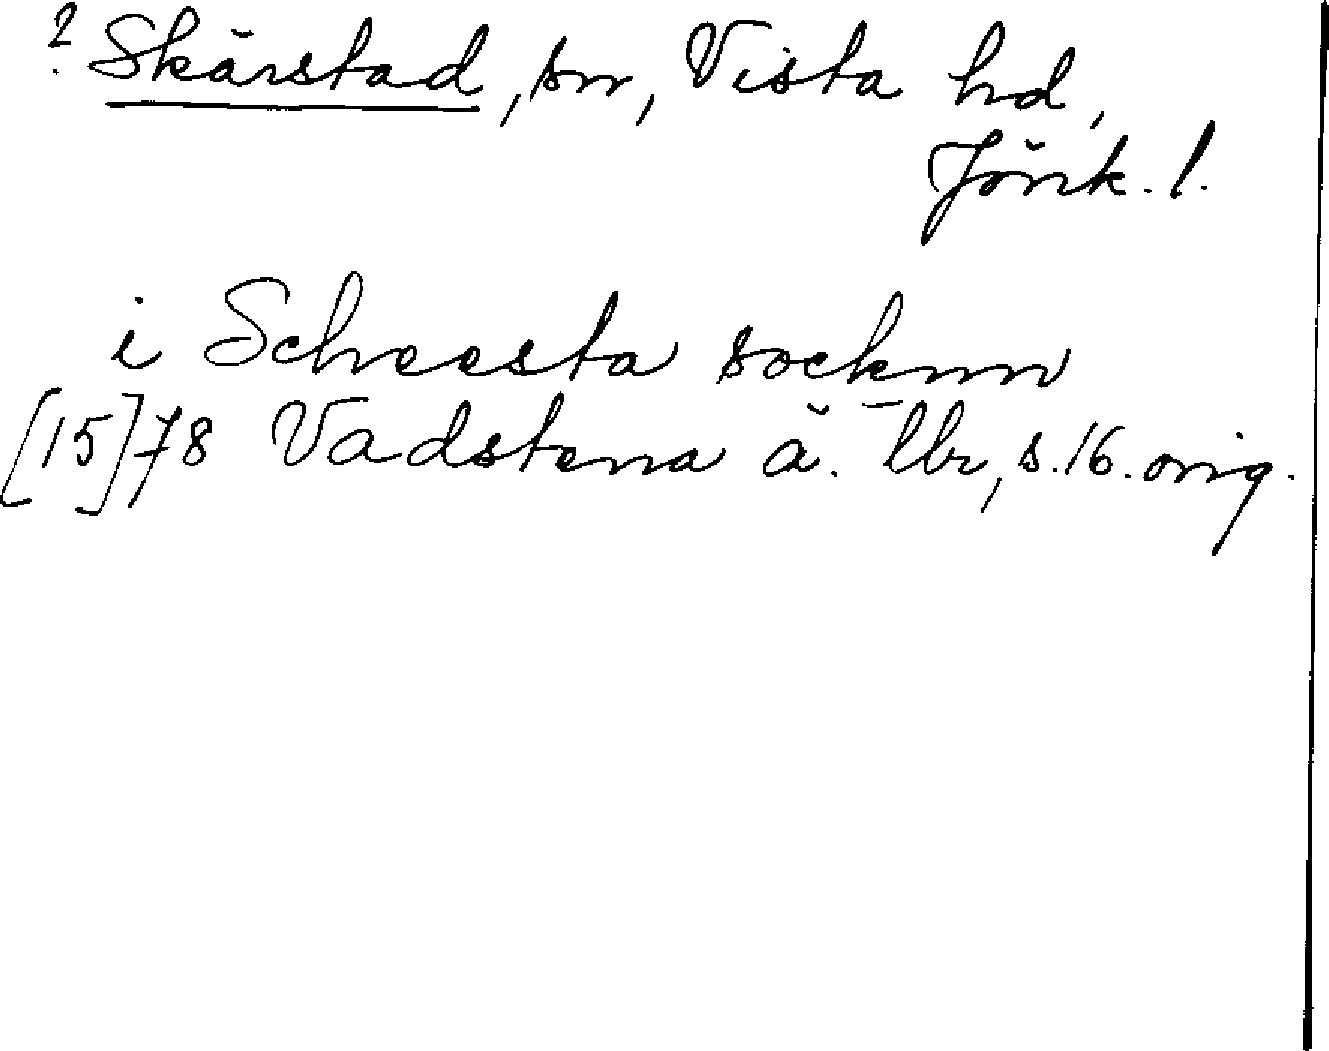 ? Skärstad, sn, Vista hd,
Jönk. l.
i Scheesta socknn
[15]78 Vadstena ä. Tlbr, s. 16. orig.